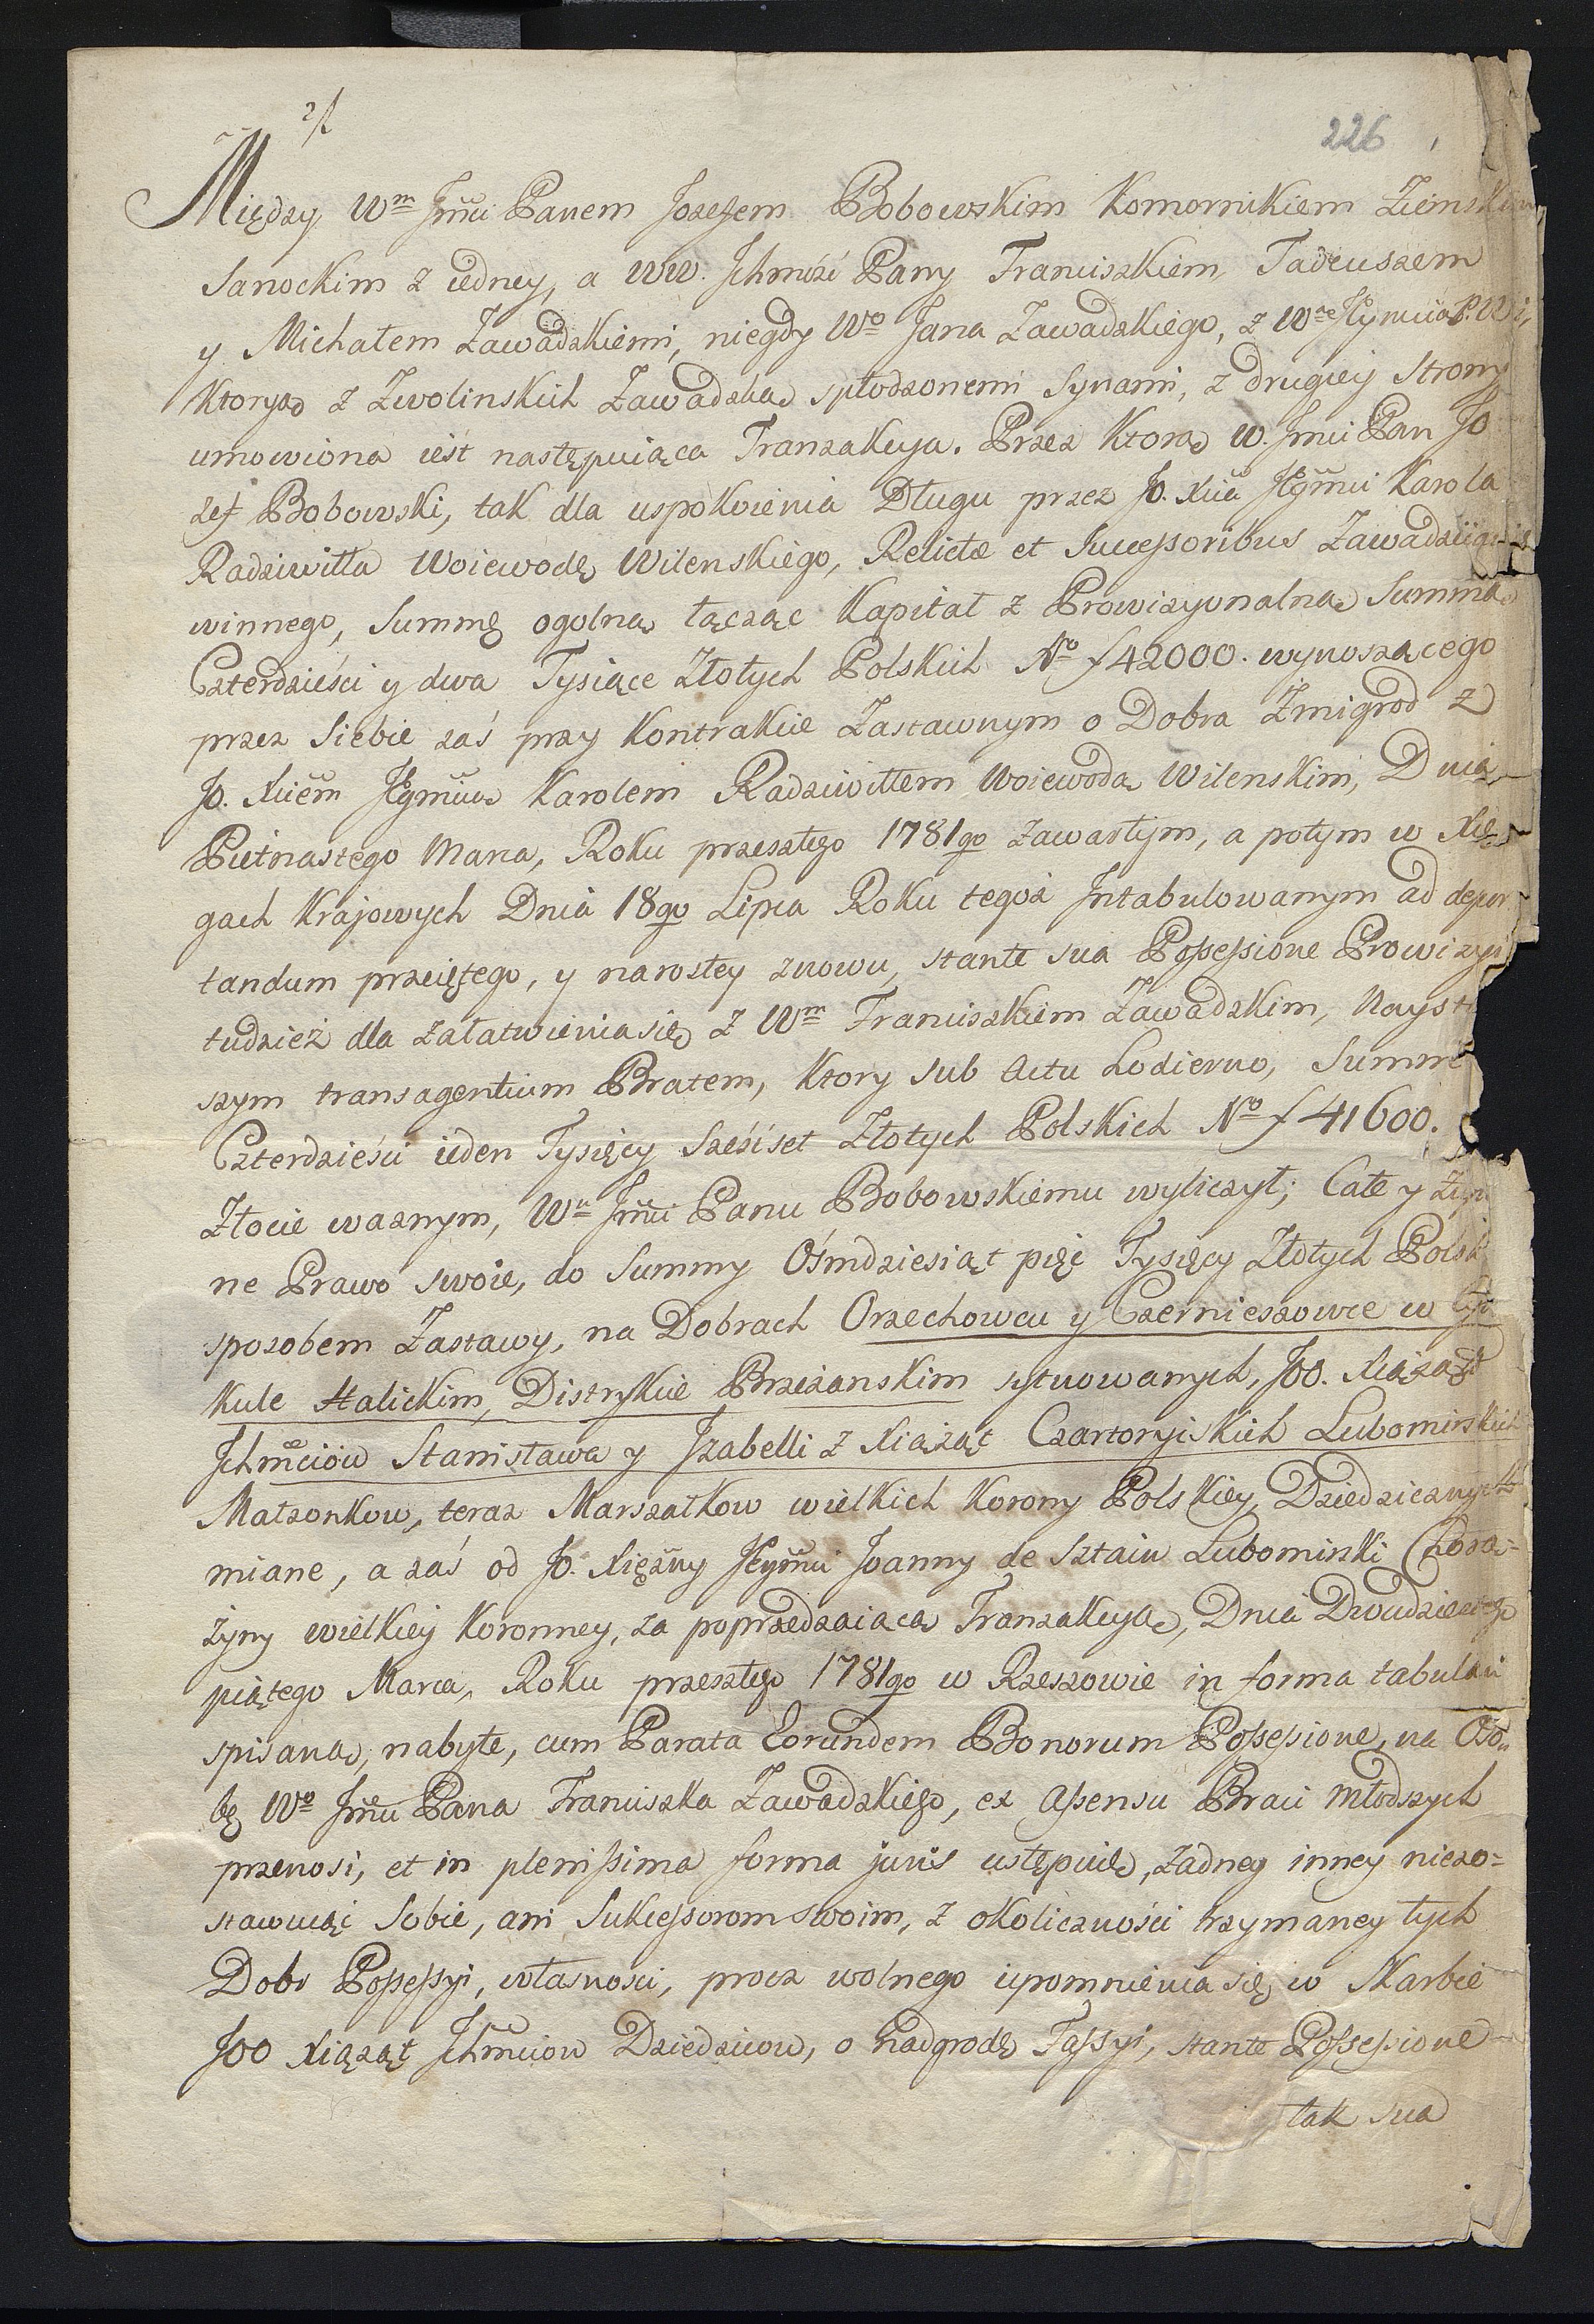 226
Między Wm Jmci Panem Jozefem Bobowskim Komornikiem Ziemskim
Sanockim z iedney, a WW. Ichmści Pany Franciszkiem Tadeuszem
y Michałem Zawadzkiemi, niegdy Wo Jana Zawadzkiego, z Wne Jeymcią
Ktoryą z Zwolinskich Zawadzką spłodzonemi Synami, z drugiey Strony
umowiona iest następuiąca Tranzakcya. Przez Ktorą W. Jmci Pan Jo
zef Bobowski, tak dla uspokoienia Długu przez Jo. Xcia Jegmci Karola
Radziwiłła Woiewodę Wilenskiego, Relictæ et Successoribus Zawadzkiego
winnego, Summę ogolną łącząc Kapitał z Prowizyonalną Summą
Czterdzieści y dwa Tysiące Złotych Polskich No f 42000. wynoszącego
przez Siebie zaś przy Kontrakcie Zastawnym o Dobra Żmigrod z
Jo. Xciem Jegmcią Karolem Radziwiłłem Woiewodą Wilenskim, Dnia
Pietnastego Marca, Roku przeszłego 1781go zawartym, a potym w Xię
gach Krajowych Dnia 18go Lipca Roku tegoż Intabulowanym ad depor
tandum przeiętego, y narosłey znowu, stante sua Possessione Prowizyi
tudzież dla załatwienia się z Wm Franciszkiem Zawadzkim, Nayst
szym transagentium Bratem, Ktory sub Actu hodierno, Summę
Czterdzieści ieden Tysięcy Sześćset Złotych Polskich No f 41600.
Złocie ważnym, Wu Jmci Panu Bobowskiemu wyliczył; Całe y zup
ne Prawo swoie, do Summy Ośmdziesiąt pięć Tysięcy Złotych Polsk
sposobem Zastawy, na Dobrach Orzechowcu y Czernieszowce w Cyr
kule Halickim, Distrykcie Brzeżanskim sytuowanych, JOO. Xiążąt
Ichmciow Stanisława y Izabelli z Xiążąt Czartoryiskich Lubomirskich
Małżonkow, teraz Marszałkow wielkich Korony Polskiey Dziedzicznych
miane, a zaś od Jo. Xiężny Jeymci Joanny de Sztain Lubomirski Chorą=
żyny wielkiey Koronney, za poprzedzaiącą Tranzakcyą, Dnia Dwudziestego
piątego Marca, Roku przeszłego 1781go w Rzeszowie in forma tabulari
spisaną, nabyte, cum Parata Eorundem Bonorum Possessione, na Oso=
bę Wo Jmci Pana Franciszka Zawadzkiego, ex Assensu Braci młodszych
przenosi, et in plenissima forma juris ustępuie, żadney inney niezo=
stawuiąc Sobie, ani Sukcessorom swoim, z okoliczności trzymaney tych
Dobr Possessyi, własności, procz wolnego upomnienia się w Skarbie
JOO Xiążąt Ichmciow Dziedzicow, o nadgrodę Fassyi, stante Possessione
tak sua